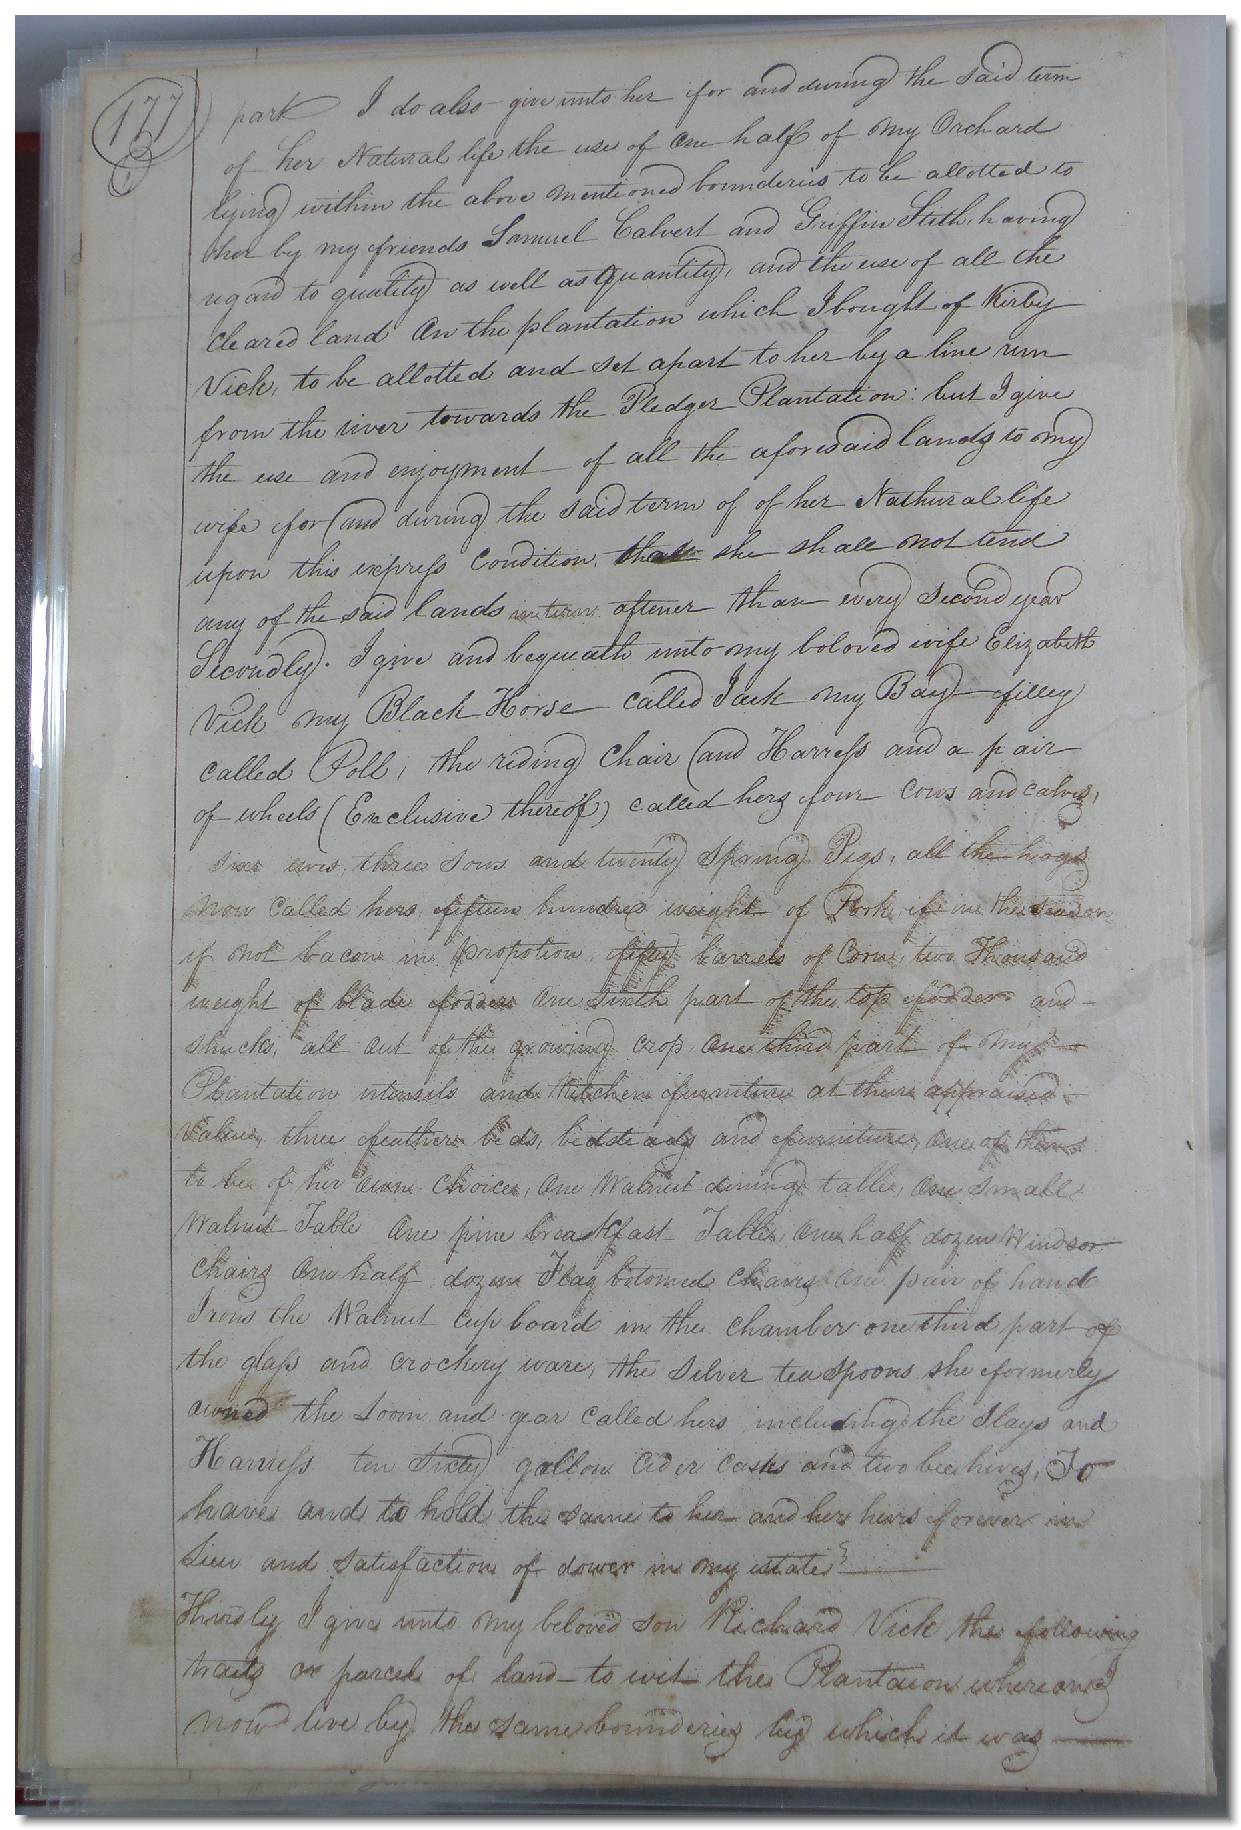 177
park I do also give unto her for and during the said term
of her Natural life the use of One half of my Orchard
lying within the above mentioned bounderies to be allotted to
her by my friends Samuel Calvert and Griffin Stith, having
regard to quality as well as Quantity, and the use of all the
cleared land On the plantation which I bought of Kirby
Vick, to be allotted and set apart to her by a line run
from the river towards the Pledger Plantation: but I give
the use and enjoyment of all the aforesaid lands to my
wife for and during the said term of of her Nathural life
upon this express Condition, that she shall not tend
any of the said lands in turn oftener than every second year
Secondly. I give and bequeath unto my beloved wife Elizabeth
Vick my Black Horse called Jack my Bay filley
called Poll, the riding Chair and Harness and a pair
of wheels (Exclusive thereof) called hers four Cows and calves,
six ewes, three sows and twenty Spring Pigs, all the hogs
now called hers, fifteen hundred weight of Pork, if in the season
if not bacon in propotion, fifty barrels of Corn, two Thousand
weight of blade fodder One Sixth part of the top fodder and
shucks, all out of the growing crop, One third part of my
Plantation utensils and Kitchen furniture at their appraised
Value, three feather beds, bedsteads and furniture, One of them
to be of her own Choice, One Walnut dining table, One small
Walnut Table One pine breakfast Table, One half dozen Windsor
Chairs One half dozen Flag botomed Chairs One pair of hand
Irons the Walnut Cupboard in the chamber one third part of
the glass and crockery ware, the silver tea spoons she formerly
owned the Loom and gear called hers including the Slays and
Harness ten Sixty gallon Cider Casks and two beehives, To
have and to hold the same to her and her heirs forever in
Lieu and satisfaction of dower in my estate
Thirdly I give unto my beloved son Richard Vick the following
tracts or parcels of land to wit the Plantaion whereon I
now live by the same bounderies by which it was